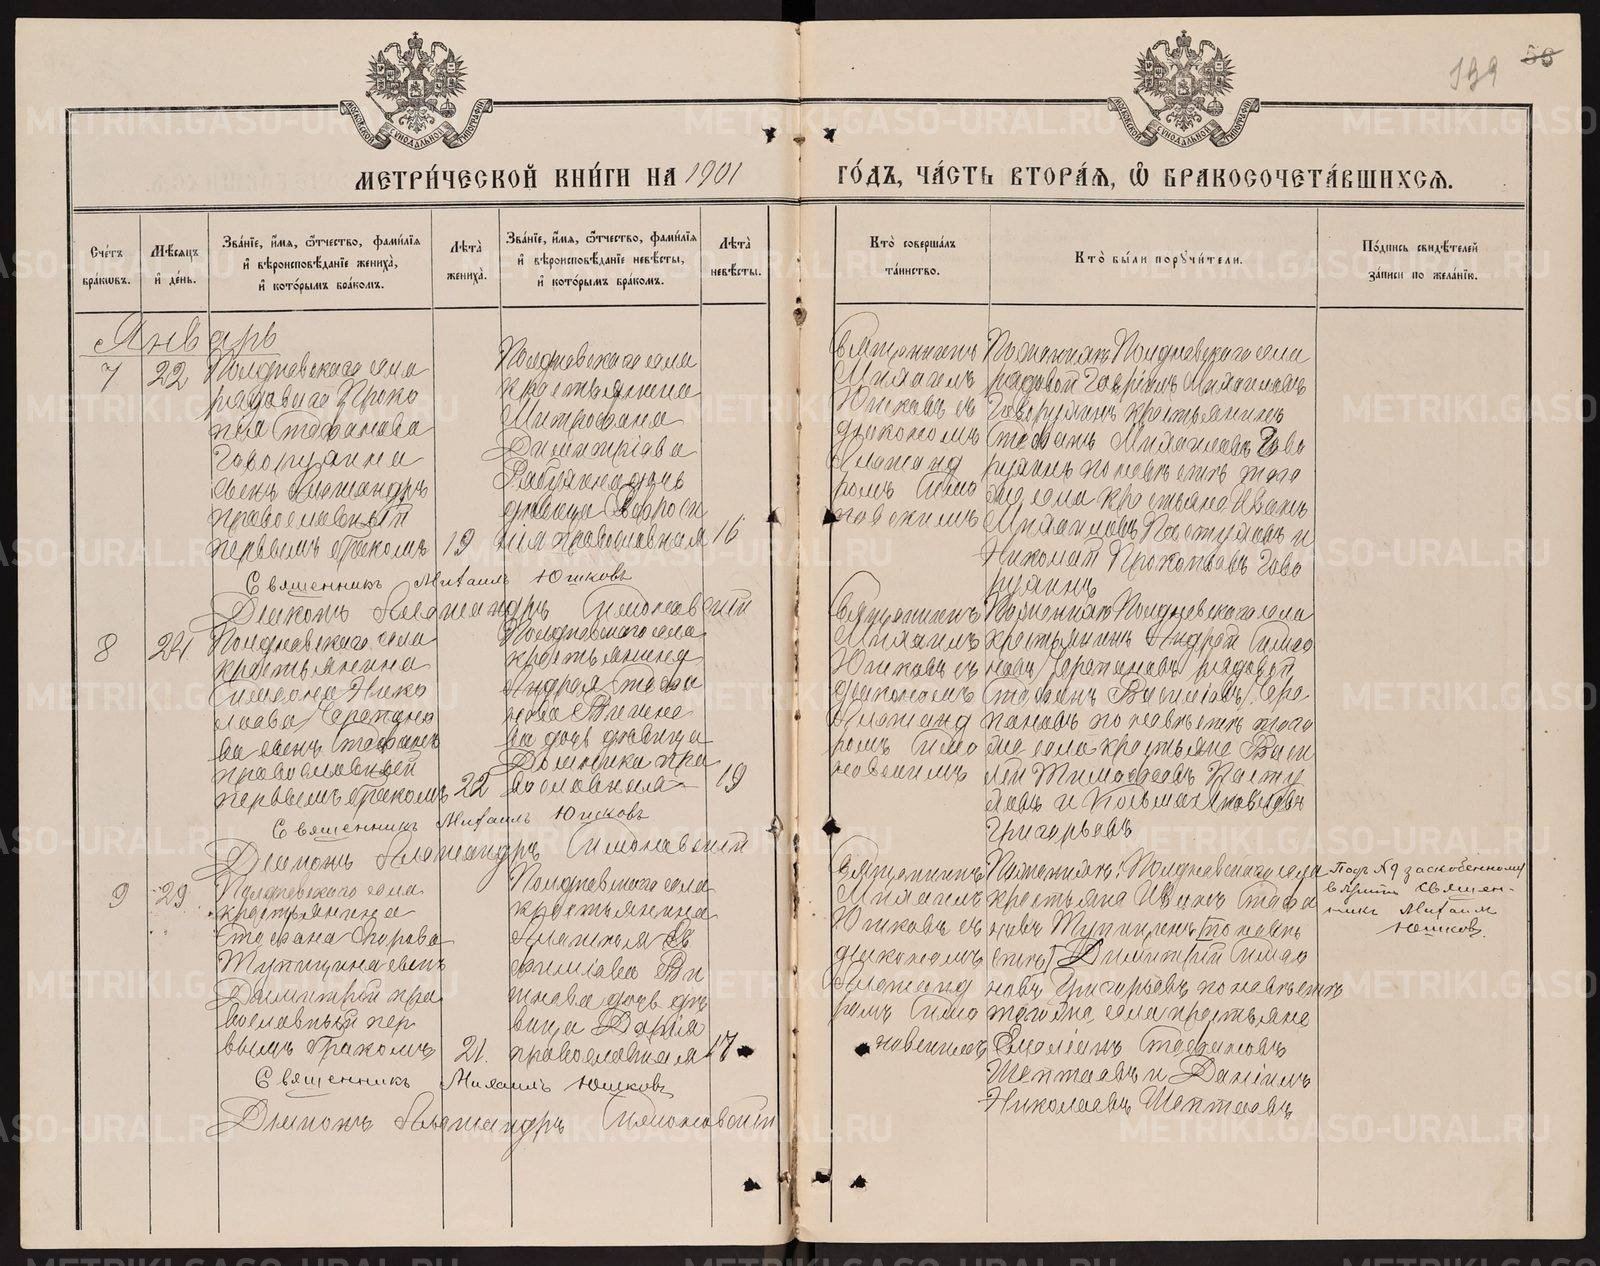 139 58
МЕТРИ́ЧЕСКОЙ КНИ́ГИ НА 1901
ГО́ДЪ, ЧА́СТЬ ВТОРА́Я, Ѡ БРАКОСОЧЕТА́ВШИХСЯ.
Сче́тъ
бра́ковъ.
Мѣ́сяцъ
и де́нь.
Зва́нїе, и́мя, ѻ́тчество, фами́лїя
и вѣроисповѣ́данїе жениха̀,
и кото́рымъ бра́комъ.
Лѣта̀
жениха̀.
Зва́нїе, и́мя, ѻ́тчество, фами́лїя
и вѣроисповѣ́данїе невѣ́сты,
и кото́рымъ бра́комъ.
Лѣта̀
невѣ́сты.
Кто̀ соверша́лъ
та́инство.
Кто̀ бы́ли пору́чи́тели.
По́дпись свидѣ́телей
за́писи по жела́нїю.
Январь
7
22
Полдневскаго села
рядового Проко
пія Стефанова
Говорухина
сынъ Александръ
православный
первымъ бракомъ
19
Полдневскаго села
крестьянина
Митрофана
Димитріева
дочь
дѣвица Евфроси
нія православная
16
Священникъ
Михаилъ
Юшковъ съ
діакономъ
Александ
ромъ Симо
новскимъ
По женихѣ Полдневскаго села
рядовой Гавріилъ Михаиловъ
Говорухинъ крестьянинъ
Стефанъ Михаиловъ Гово
рухинъ по невѣстѣ того
же села крестьяне Иванъ
Михаиловъ Пастуховъ и
Николай Прокопьевъ Гово
рухинъ
Священникъ Михаилъ Юшковъ
Діаконъ Александръ Симоновскій
8
24.
Полдневскаго села
крестьянина
Симеона Нико
лаева Черепано
ва сынъ Стефанъ
православный
первымъ бракомъ
22
Полдневскаго села
крестьянина
Андрея Стефа
нова
ва дочь дѣвица
Домника пра
вославная
19
Священникъ
Михаилъ
Юшковъ съ
діакономъ
Александ
ромъ Симо
новскимъ
По женихѣ Полдневскаго села
крестьянинъ Андрей Симео
новъ Черепановъ рядовой
Стефанъ Васильевъ Чере
пановъ по невѣстѣ того
же села крестьяне Васи
лій Тимофеевъ Пасту
ховъ и Козьма Яковлевъ
Григорьевъ
Священникъ Михаилъ Юшковъ
Діаконъ Александръ Симоновскій
9
29
Полдневскаго села
крестьянина
Стефана Егорова
Тупицина сынъ
Димитрій пра
вославный пер
вымъ бракомъ
21.
Полдневскаго села
крестьянина
Алексея Ев
фиміева
дочь дѣ
вица Дарія
православная
17
Священникъ
Михаилъ
Юшковъ съ
діакономъ
Александ
ромъ Симо
новскимъ
По женихѣ: Полдневскаго села
крестьяне Иванъ Стефа
новъ Тупицинъ [по невѣ
стѣ] Димитрій Симео
новъ Григорьевъ по невѣстѣ
того же села крестьяне
Емеліанъ Стефановъ
Шептаевъ и Даніилъ
Николаевъ Шептаевъ
Подъ № 9 заскобенному
вѣрить Священ-
никъ Михаилъ
Юшковъ.
Священникъ Михаилъ Юшковъ
Діаконъ Александръ Симоновскій